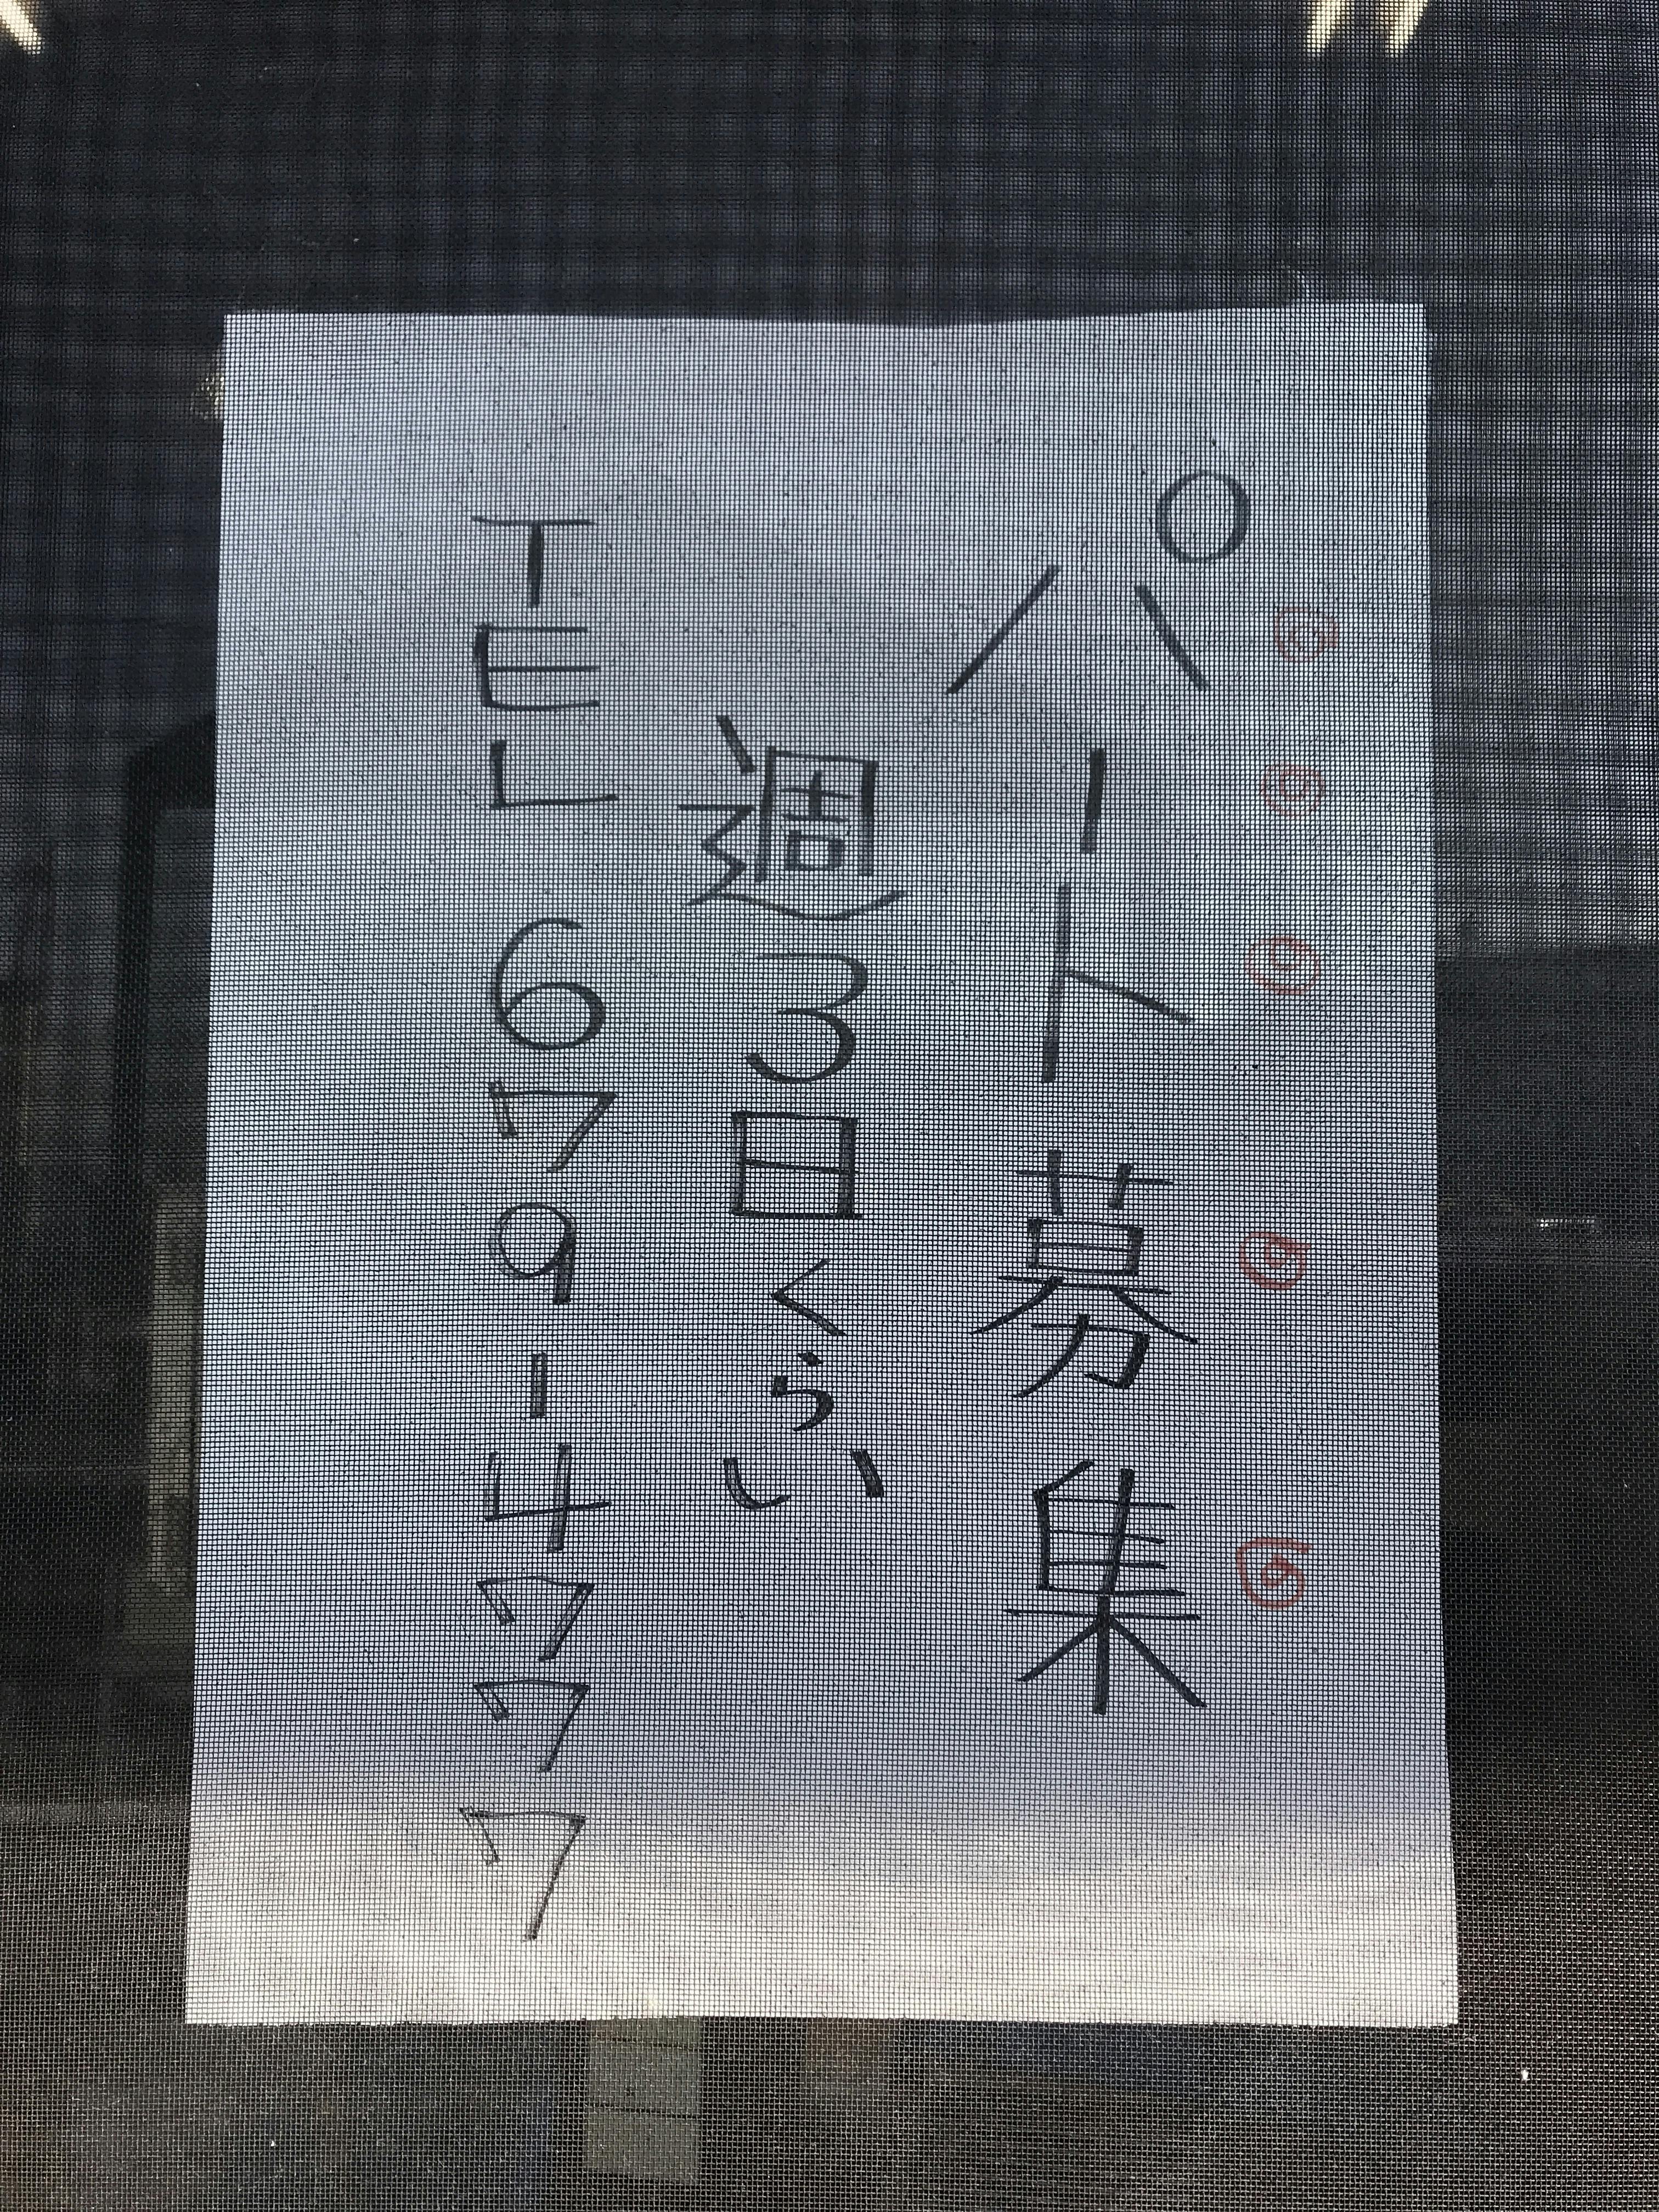 パート募集
週3日くらい
TEL 6779-4777